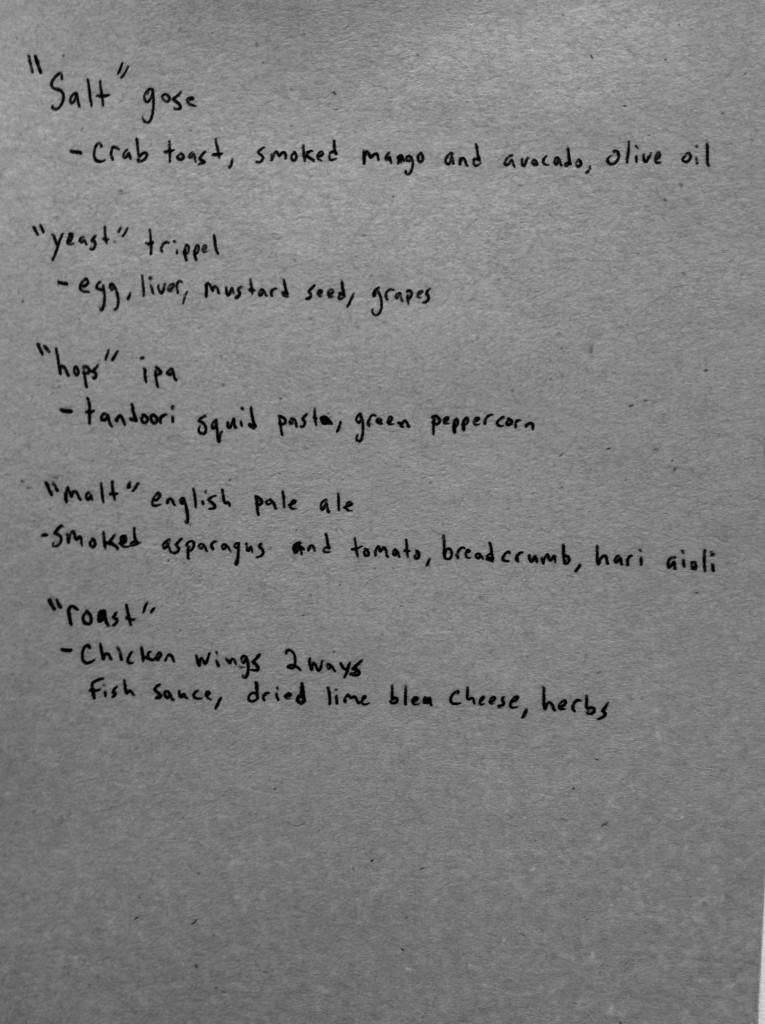 "Salt" gose
- Crab toast, smoked mango and avocado, olive oil
"yeast" trippel
- egg, liver, mustard seed, grapes
"hops" ipa
- tandoori squid pasta, green peppercorn
"malt" english pale ale
- Smoked asparagus and tomato, breadcrumb, hari aioli
"roast"
- Chicken wings 2 ways
fish sauce, dried lime bleu cheese, herbs